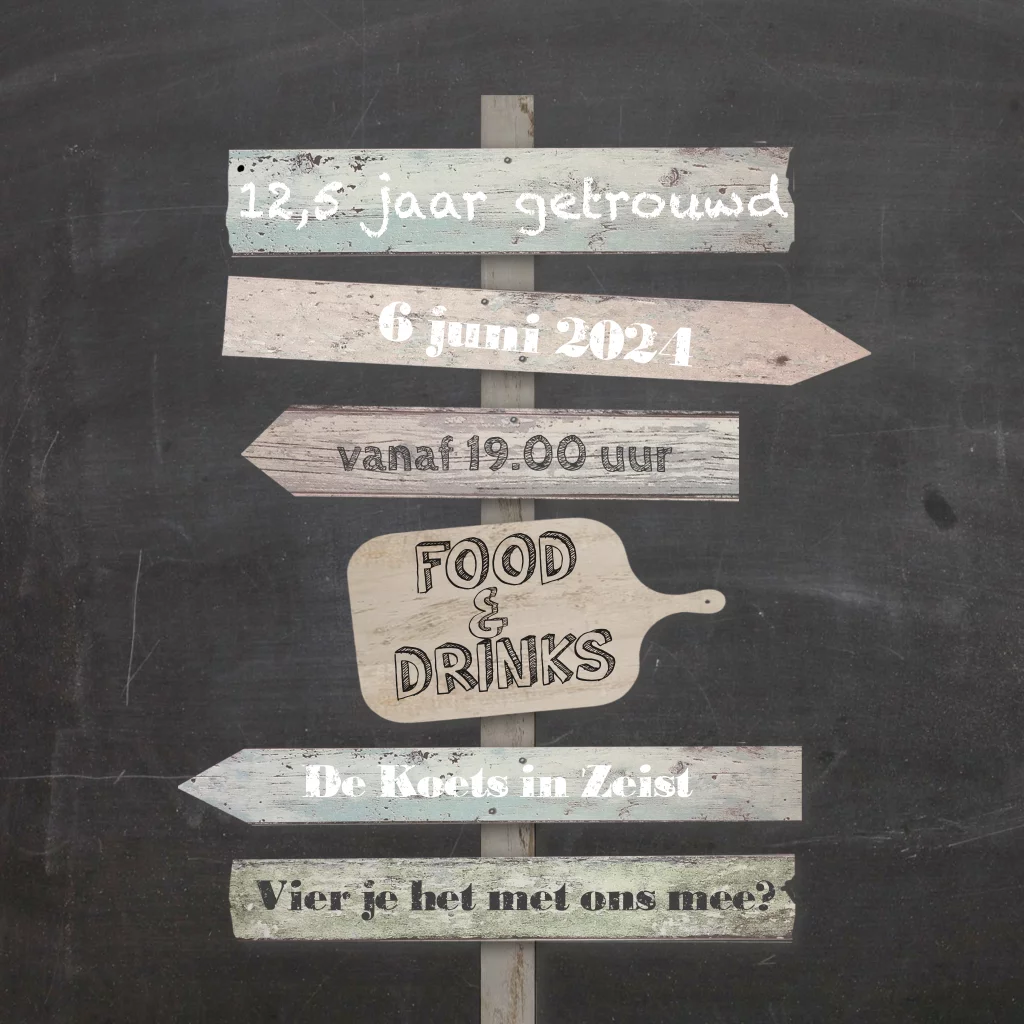 12,5 jaar getrouwd
6 juni 2024
vanaf 19.00 uur
FOOD
&
DRINKS
De Koets in Zeist
Vier je het met ons mee?